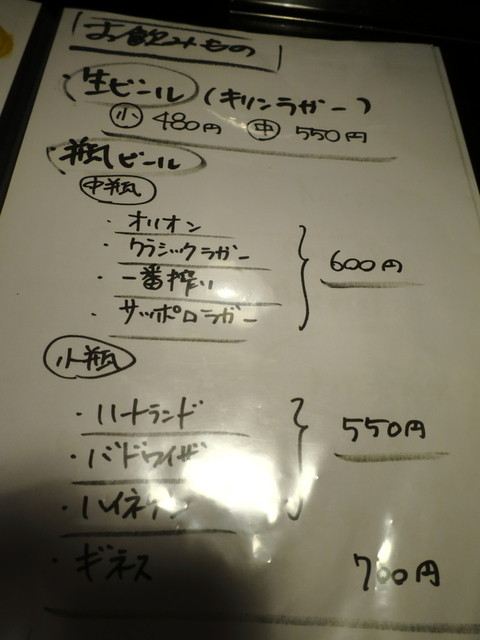 お飲みもの
・生ビール (キリンラガー)
小 480円 中 550円
瓶ビール
中瓶
・オリオン
・クラシックラガー
・一番搾り
・サッポロラガー
600円
小瓶
・ハートランド
・バドワイザー
・ハイネケン
550円
・ギネス 700円